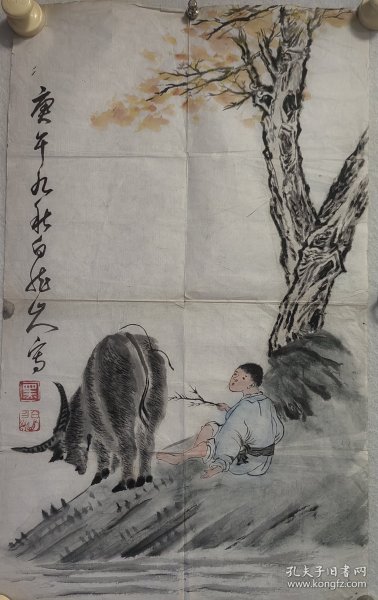 庚午九秋白雅山人写
孔夫子旧书网
www.kongfz.com